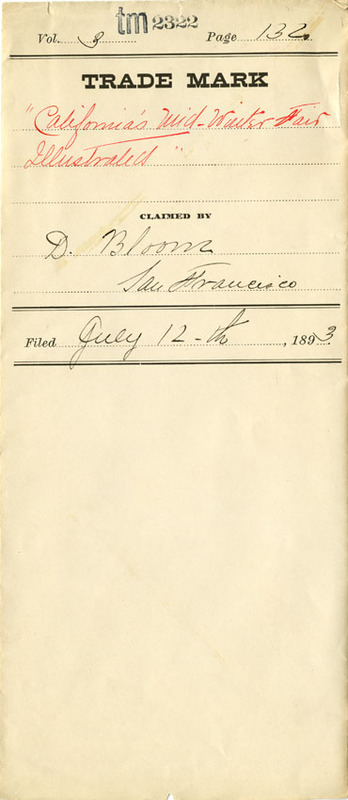 tm 2322
Vol. 3 Page 132
TRADE MARK
"California's Mid-Winter Fair
Illustrated"
CLAIMED BY
D. Bloom
San Francisco
Filed July 12-th, 1893